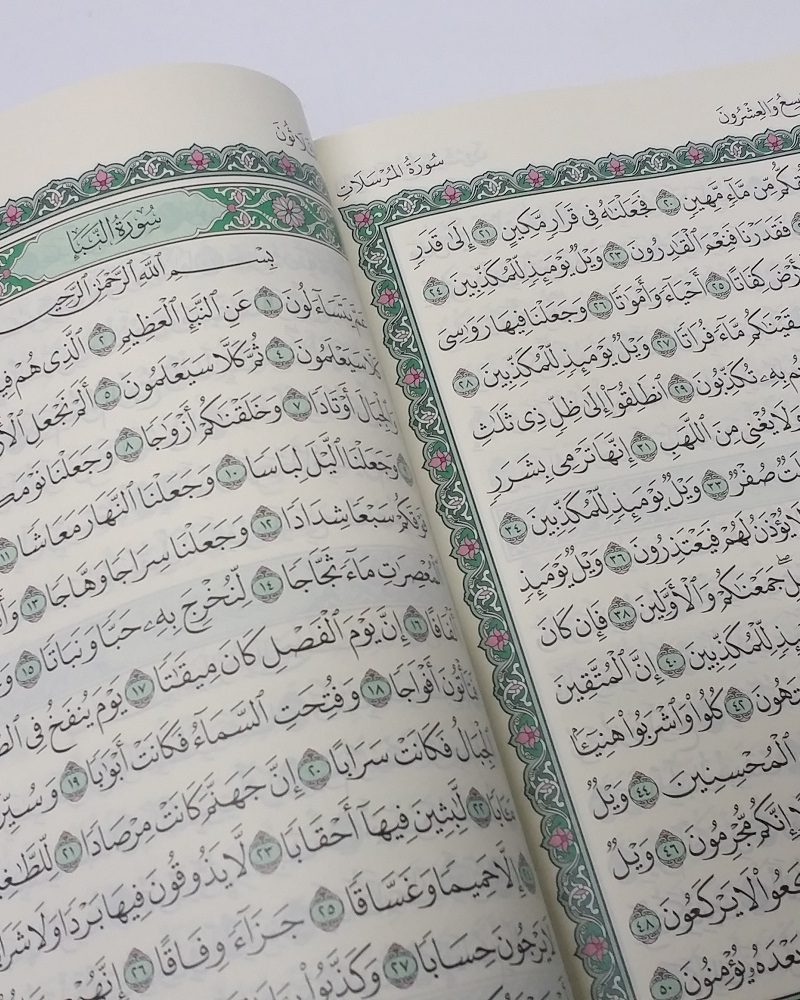 سُورَةُ المُرْسَلَات
وَالْعِشْرُونَ
مِّن مَّآءٍ مَّهِينٍ ٢٠ فَجَعَلْنَٰهُ فِى قَرَارٍ مَّكِينٍ ٢١ إِلَىٰ قَدَرٍ
فَقَدَرْنَا فَنِعْمَ ٱلْقَٰدِرُونَ ٢٣ وَيْلٌ يَوْمَئِذٍ لِّلْمُكَذِّبِينَ ٢٤
كِفَاتًا ٢٥ أَحْيَآءً وَأَمْوَٰتًا ٢٦ وَجَعَلْنَا فِيهَا رَوَٰسِىَ
مَّآءً فُرَاتًا ٢٧ وَيْلٌ يَوْمَئِذٍ لِّلْمُكَذِّبِينَ ٢٨
بِهِۦ تُكَذِّبُونَ ٢٩ ٱنطَلِقُوٓا۟ إِلَىٰ ظِلٍّ ذِى ثَلَٰثِ
وَلَا يُغْنِى مِنَ ٱللَّهَبِ ٣١ إِنَّهَا تَرْمِى بِشَرَرٍ
صُفْرٌ ٣٣ وَيْلٌ يَوْمَئِذٍ لِّلْمُكَذِّبِينَ ٣٤
يُؤْذَنُ لَهُمْ فَيَعْتَذِرُونَ ٣٦ وَيْلٌ يَوْمَئِذٍ
جَمَعْنَٰكُمْ وَٱلْأَوَّلِينَ ٣٨ فَإِن كَانَ
لِّلْمُكَذِّبِينَ ٤٠ إِنَّ ٱلْمُتَّقِينَ
٤٢ كُلُوا۟ وَٱشْرَبُوا۟ هَنِيٓـًٔۢا
ٱلْمُحْسِنِينَ ٤٤ وَيْلٌ
إِنَّكُم مُّجْرِمُونَ ٤٦ وَيْلٌ
لَا يَرْكَعُونَ ٤٨
بَعْدَهُۥ يُؤْمِنُونَ ٥٠
سُورَةُ النَّبَإِ
بِسْمِ ٱللَّهِ ٱلرَّحْمَٰنِ ٱلرَّحِيمِ
عَمَّ يَتَسَآءَلُونَ ١ عَنِ ٱلنَّبَإِ ٱلْعَظِيمِ ٢ ٱلَّذِى هُمْ
كَلَّا سَيَعْلَمُونَ ٤ ثُمَّ كَلَّا سَيَعْلَمُونَ ٥ أَلَمْ نَجْعَلِ
وَٱلْجِبَالَ أَوْتَادًا ٧ وَخَلَقْنَٰكُمْ أَزْوَٰجًا ٨ وَجَعَلْنَا
وَجَعَلْنَا ٱلَّيْلَ لِبَاسًا ١٠ وَجَعَلْنَا ٱلنَّهَارَ مَعَاشًا ١١
فَوْقَكُمْ سَبْعًا شِدَادًا ١٢ وَجَعَلْنَا سِرَاجًا وَهَّاجًا ١٣
ٱلْمُعْصِرَٰتِ مَآءً ثَجَّاجًا ١٤ لِّنُخْرِجَ بِهِۦ حَبًّا وَنَبَاتًا ١٥
أَلْفَافًا ١٦ إِنَّ يَوْمَ ٱلْفَصْلِ كَانَ مِيقَٰتًا ١٧ يَوْمَ يُنفَخُ فِى
فَتَأْتُونَ أَفْوَاجًا ١٨ وَفُتِحَتِ ٱلسَّمَآءُ فَكَانَتْ أَبْوَٰبًا ١٩ وَسُيِّرَتِ
ٱلْجِبَالُ فَكَانَتْ سَرَابًا ٢٠ إِنَّ جَهَنَّمَ كَانَتْ مِرْصَادًا ٢١ لِّلطَّٰغِينَ
مَـَٔابًا ٢٢ لَّٰبِثِينَ فِيهَآ أَحْقَابًا ٢٣ لَّا يَذُوقُونَ فِيهَا بَرْدًا وَلَا شَرَابًا
إِلَّا حَمِيمًا وَغَسَّاقًا ٢٥ جَزَآءً وِفَاقًا ٢٦ إِنَّهُمْ
لَا يَرْجُونَ حِسَابًا ٢٧ وَكَذَّبُوا۟